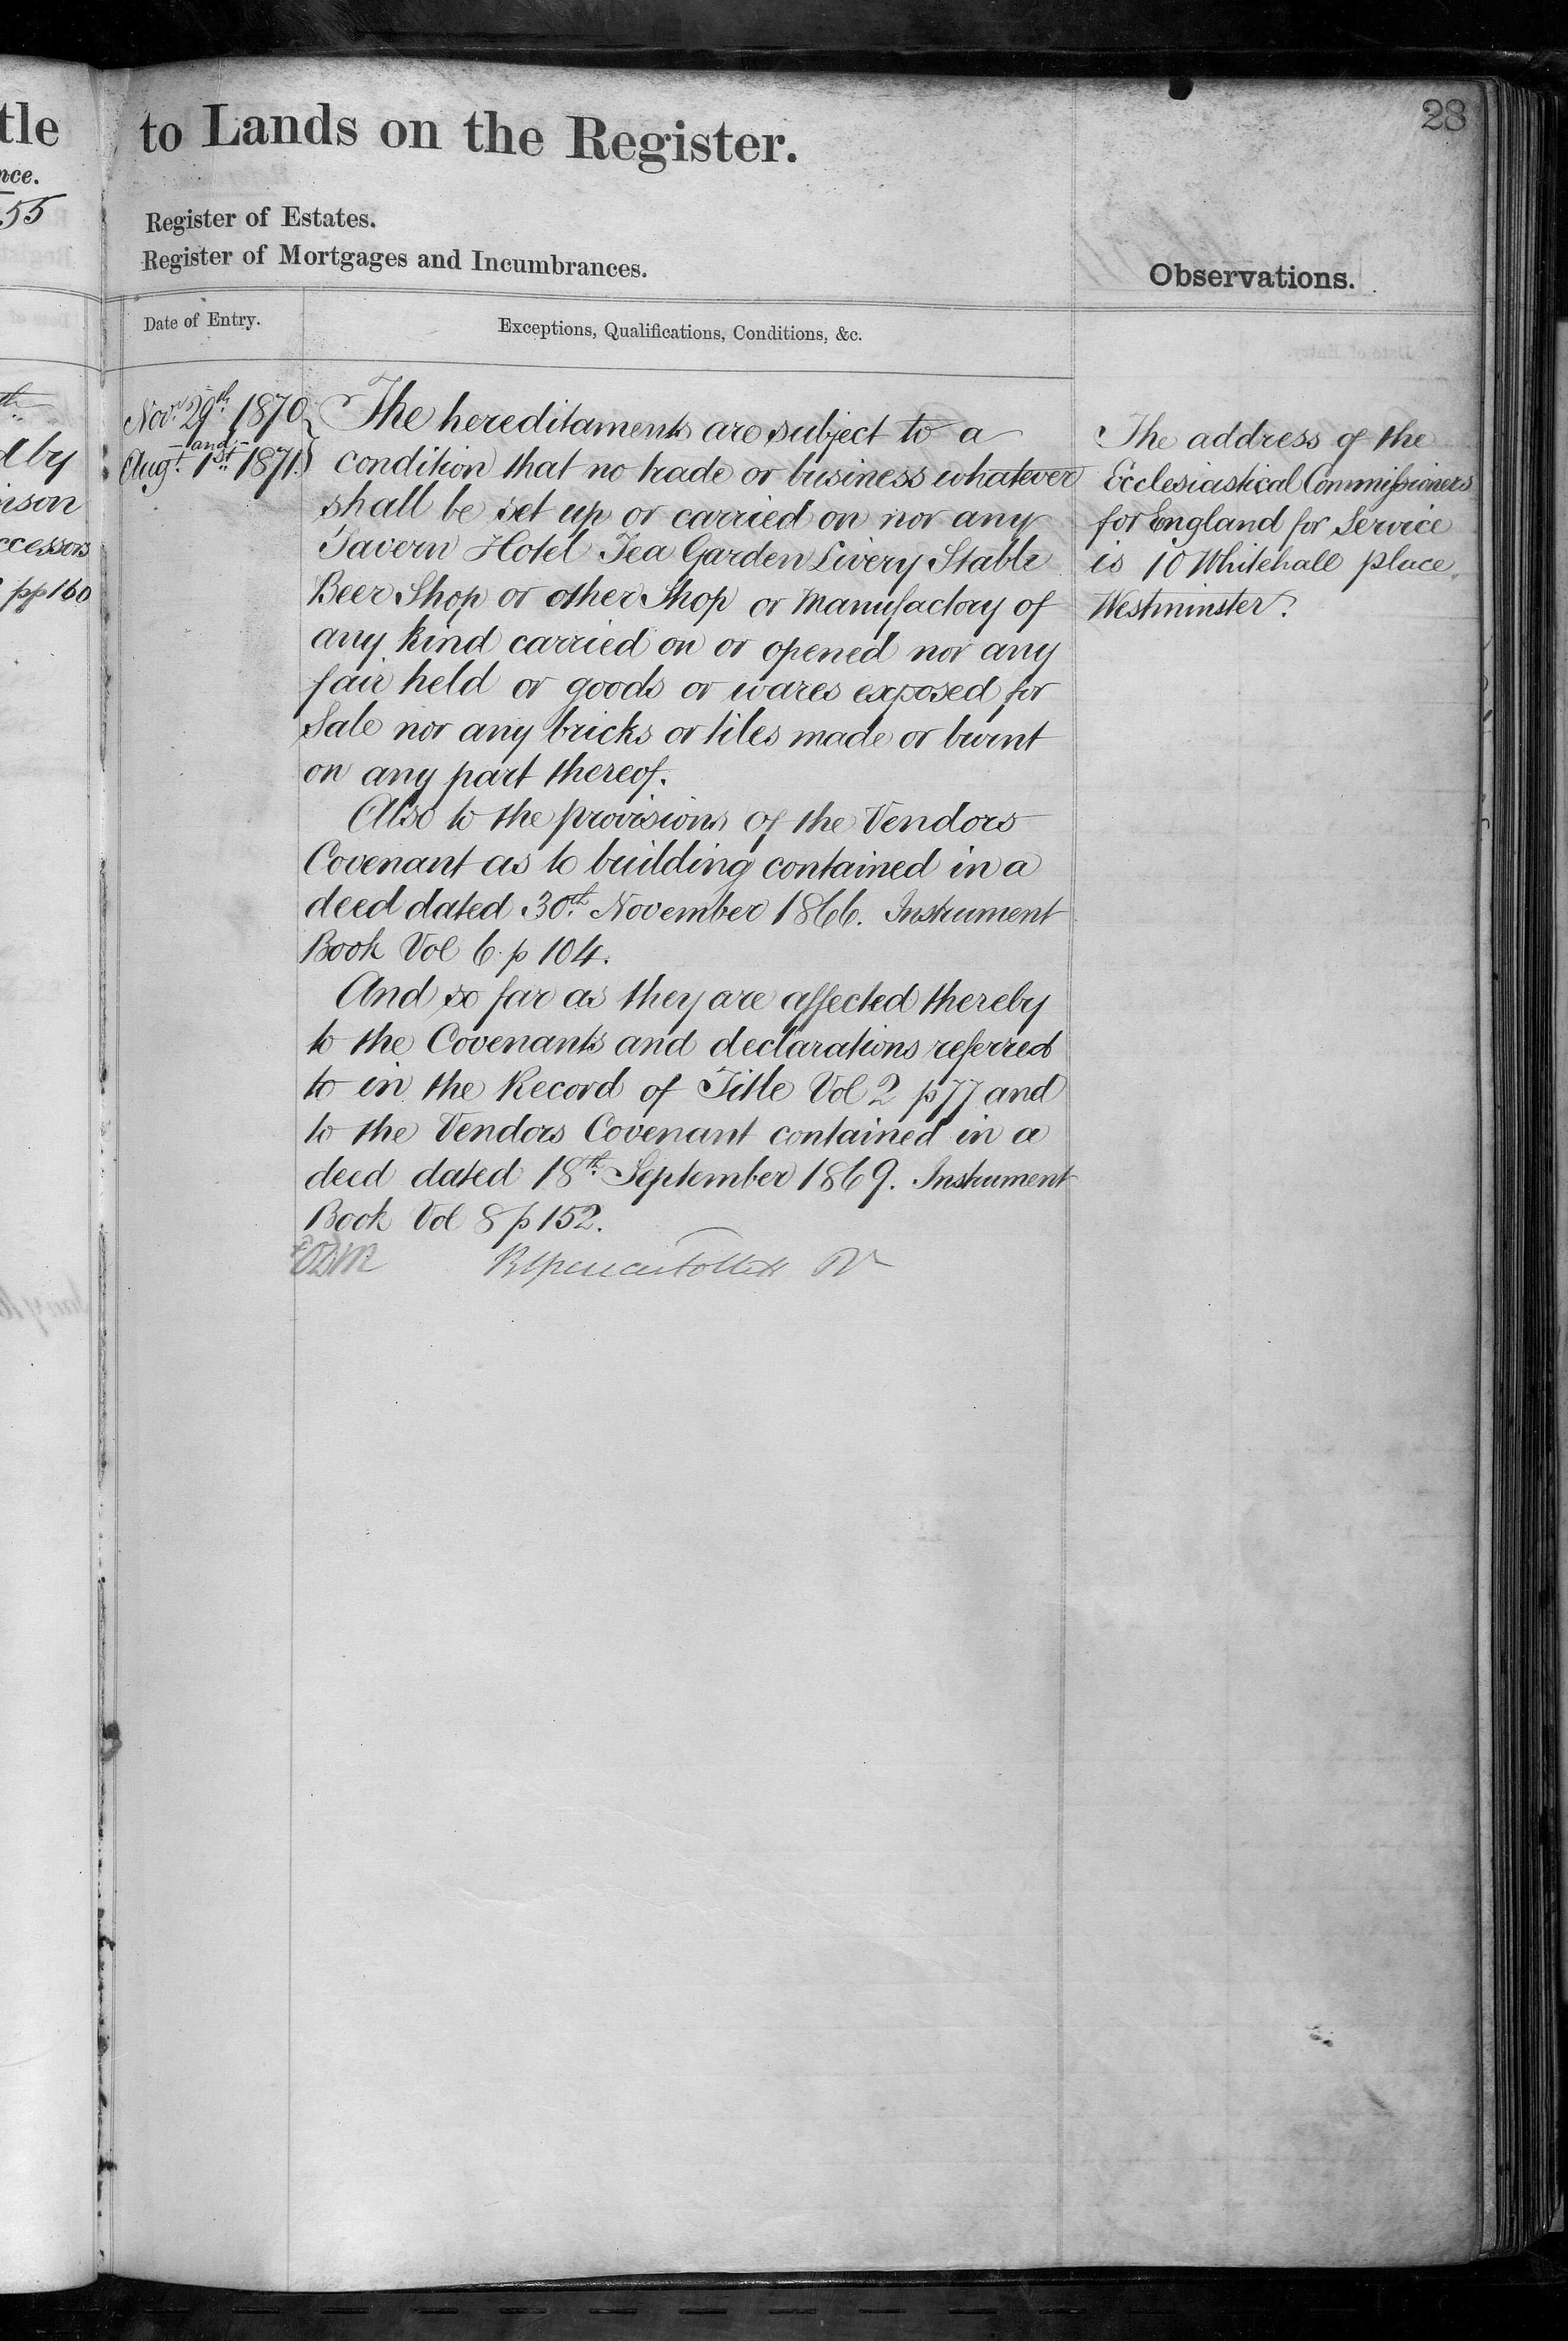 tle
nce.
55
th
d by
nson
ccessors
pp 160
to Lands on the Register.
28
Register of Estates.
Register of Mortgages and Incumbrances.
Observations.
Date of Entry.
Exceptions, Qualifications, Conditions, &c.
Novr. 29th. 1870
and
Augt. 1st 1871.
The hereditaments are subject to a
condition that no trade or business whatever
shall be set up or carried on nor any
Tavern Hotel Tea Garden Livery Stable
Beer Shop or other Shop or Manufactory of
any kind carried on or opened nor any
fair held or goods or wares exposed for
Sale nor any bricks or tiles made or burnt
on any part thereof.
Also to the provisions of the Vendors
Covenant as to building contained in a
deed dated 30th. November 1866. Instrument
Book Vol 6. p 104.
And so far as they are affected thereby
to the Covenants and declarations referred
to in the Record of Title Vol 2 p 77 and
to the Vendors Covenant contained in a
deed dated 18th. September 1869. Instrument
Book Vol 8 p 152.
The address of the
Ecclesiastical Commissioners
for England for Service
is 10 Whitehall place
Westminster.